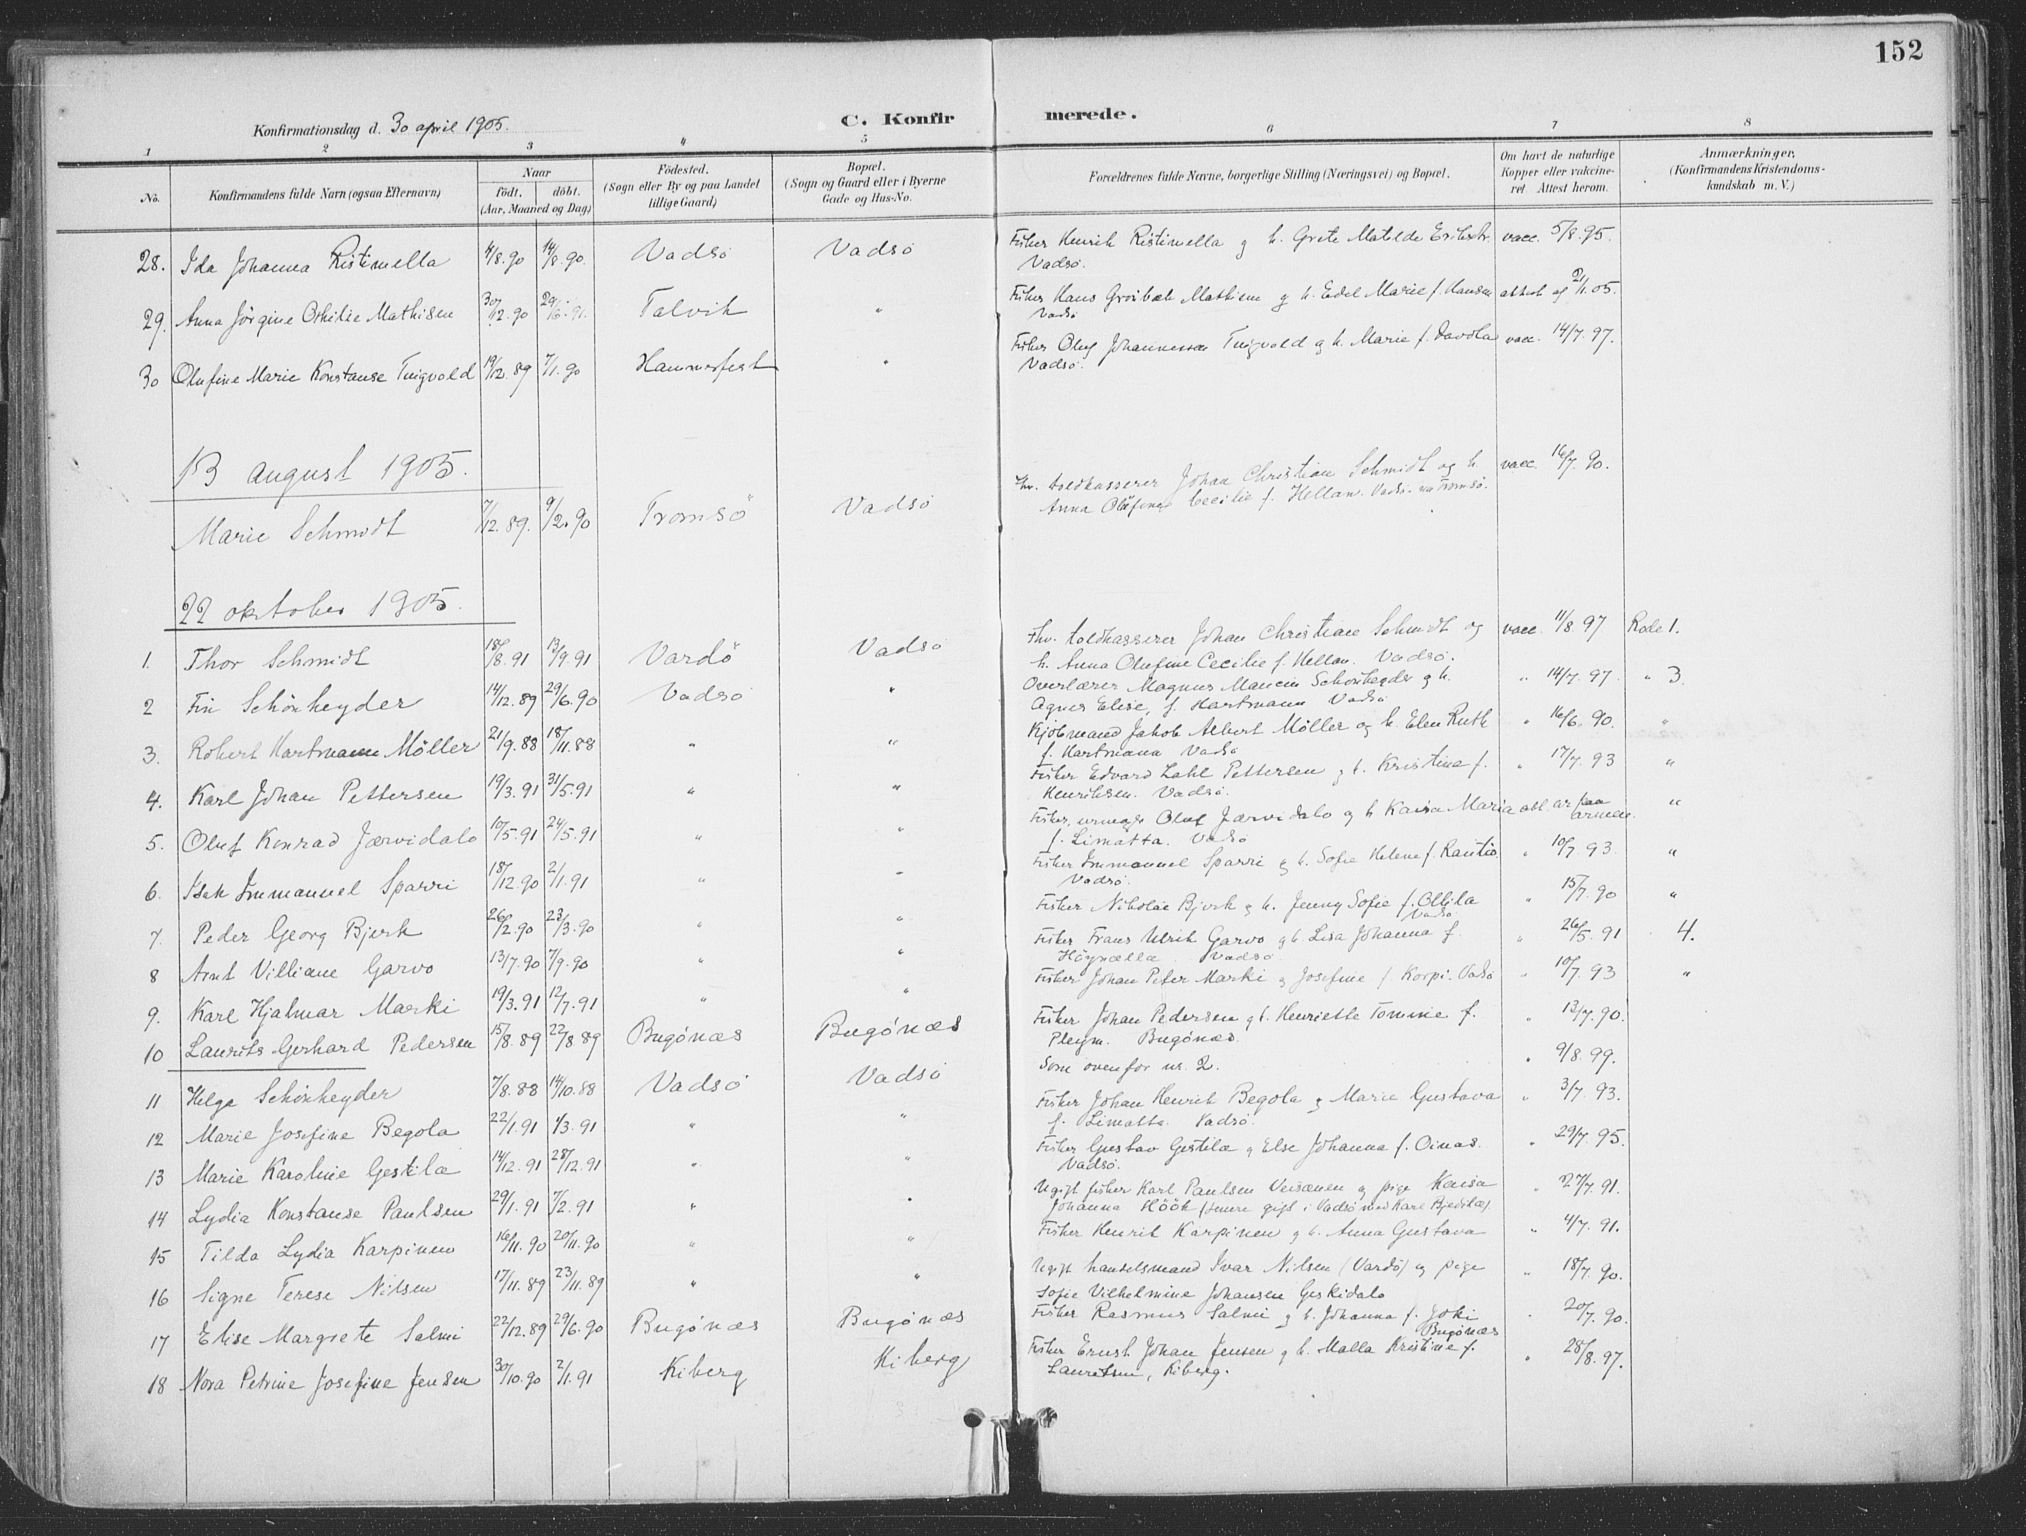 152
Konfirmationsdag d. 30 april 1905.
C. Konfirmerede.
1 2 3 4 5 6 7 8
No. Konfirmandens fulde Navn (ogsaa Efternavn) Naar födt. döbt. (Aar, Maaned og Dag) Födested. (Sogn eller By og paa Landet tillige Gaard) Bopæl. (Sogn og Gaard eller i Byerne Gade og Hus-No. Forældrenes fulde Navne, borgerlige Stilling (Næringsvei) og Bopæl. Om havt de naturlige Kopper eller vaccineret. Attest herom. Anmærkninger. (Konfirmandens Kristendomskundskab m. V.)
28. Ida Johanna Ristimella 4/8.90 14/8.90. Vadsö Vadsö Fisker Henrik Ristimella g h. Grete Matilde Eriksdr vacc. 5/8.95.
Vadsö.
29. Anna Jörgine Othilie Mathisen 30/12.90 29/6.91 Talvik " Fisker Hans Mathisen g h. Edel Marie f. Hansen attest af 2/1.05.
Vadsö
30 Olufine Marie Konstanse Tuigvold 19/12.89 7/1.90 Hammerfest " Fisker Oluf Johannessen Tuigvold g h. Marie f. vacc. 14/7.97.
Vadsö.
13 august 1905.
Marie Schmidt 7/12.89. 9/2.90 Tromsö Vadsö Fhv. toldkasserer Johan Christian Schmidt og h. vacc. 16/7.90.
Anna Olufine Cecilie f. Hellan. Vadsö Tromsö.
22 oktober 1905.
1. Thor Schmidt 18/8.91 13/9.91 Vardö Vadsö Fhv. toldkasserer Johan Christian Schmidt og vacc. 11/8.97 Rode 1.
h. Anna Olufine Cecilie f. Hellan. Vadsö.
2 Fin Schönheyder 14/12.89 29/6.90 Vadsö " Overlærer Magnus Schönheyder g h. " 14/7.97. " 3.
Agnes Elise, f. Hartmann Vadsö
3. Robert Hartmann Möller 21/9.88 18/11.88 " " Kjöbmand Jakob Albert Möller og h. Elen Ruth " 16/6.90. "
f. Hartmann Vadsö
4. Karl Johan Pettersen 19/3.91 31/5.91 " " Fisker Edvard Lahl Pettersen g h. Kristine f. " 17/7.93 "
Henriksen. Vadsö.
5. Oluf Konrad Jærvidalo 10/5.91 24/5.91 " " Fisker, Oluf Jærvidalo og h Kaisa Maria ar paa armen. "
f. Limatta. Vadsö
6. Isak Immanuel Sparri 18/12.90 2/1.91 " " Fisker Immanuel Sparri g h. Sofie Helene f. Rautio. " 10/7.93. "
Vadsö.
7. Peder Georg Bjerk 26/2.90 23/3.90 " " Fisker Nikolai Bjerk g h. Jenny Sofie f. Ollila " 15/7.90 "
Vadsö
8 Arnt Villiane Garvo 13/7.90 7/9.90 " " Fisker Frans Ulrik Garvo g h. Lisa Johanna f. " 26/5.91 4.
Vadsö
9. Karl Hjalmar Marki 19/3.91 12/7.91 " " Fisker Johan Peter Marki g Josefine f. Korpi. Vadsö " 10/7.93 "
10 Laurits Gerhard Pedersen 15/8.89 22/8 89 Bugönæs Bugönæs Fisker Johan Pedersen g h. Henriette Tomine f. " 13/7.90.
Pleym. Bugönæs.
11 Helga Schönheyder 7/8.88 14/10.88 Vadsö Vadsö Som ovenfor nr. 2. " 9/8.99.
12 Marie Josefine Begola 22/1.91 1/3.91 " " Fisker Johan Henrik Begola g Marie Gustava " 3/7.93.
f. Limatta. Vadsö.
13 Marie Karoline Gestilæ 14/12.91 28/12.91 " " Fisker Gustav Gestilæ g Else Johanna f. Oinas. " 29/7.95.
Vadsö.
14 Lydia Konstanse Paulsen 29/1.91 7/2.91 " " Ugift fisker Karl Paulsen g pige Kaisa " 27/7.91.
Johanna Höök (senere gift i Vadsö med Karl
15 Tilda Lydia Karpinen 16/11.90 20/11.90 " " Fisker Henrik Karpinen g h. Anna Gustava " 4/7.91.
16 Signe Terese Nilsen 17/11.89 23/11.89 " " Ugift handelsmand Ivar Nilsen (Vardö) g pige " 18/7.90.
Sofie Vilhelmine Johansen Geskidalo
17 Elise Margrete Salmi 22/12.89 29/6.90 Bugönæs Bugönæs Fisker Rasmus Salmi g h. Johanna f. Joki " 20/7.90.
Bugönæs
18 Nora Petrine Josefine Jensen 30/10.90 2/1.91 Kiberg Kiberg Fisker Ernst Johan Jensen g h. Malla Kristine f. " 28/8.97.
Lauritsen, Kiberg.